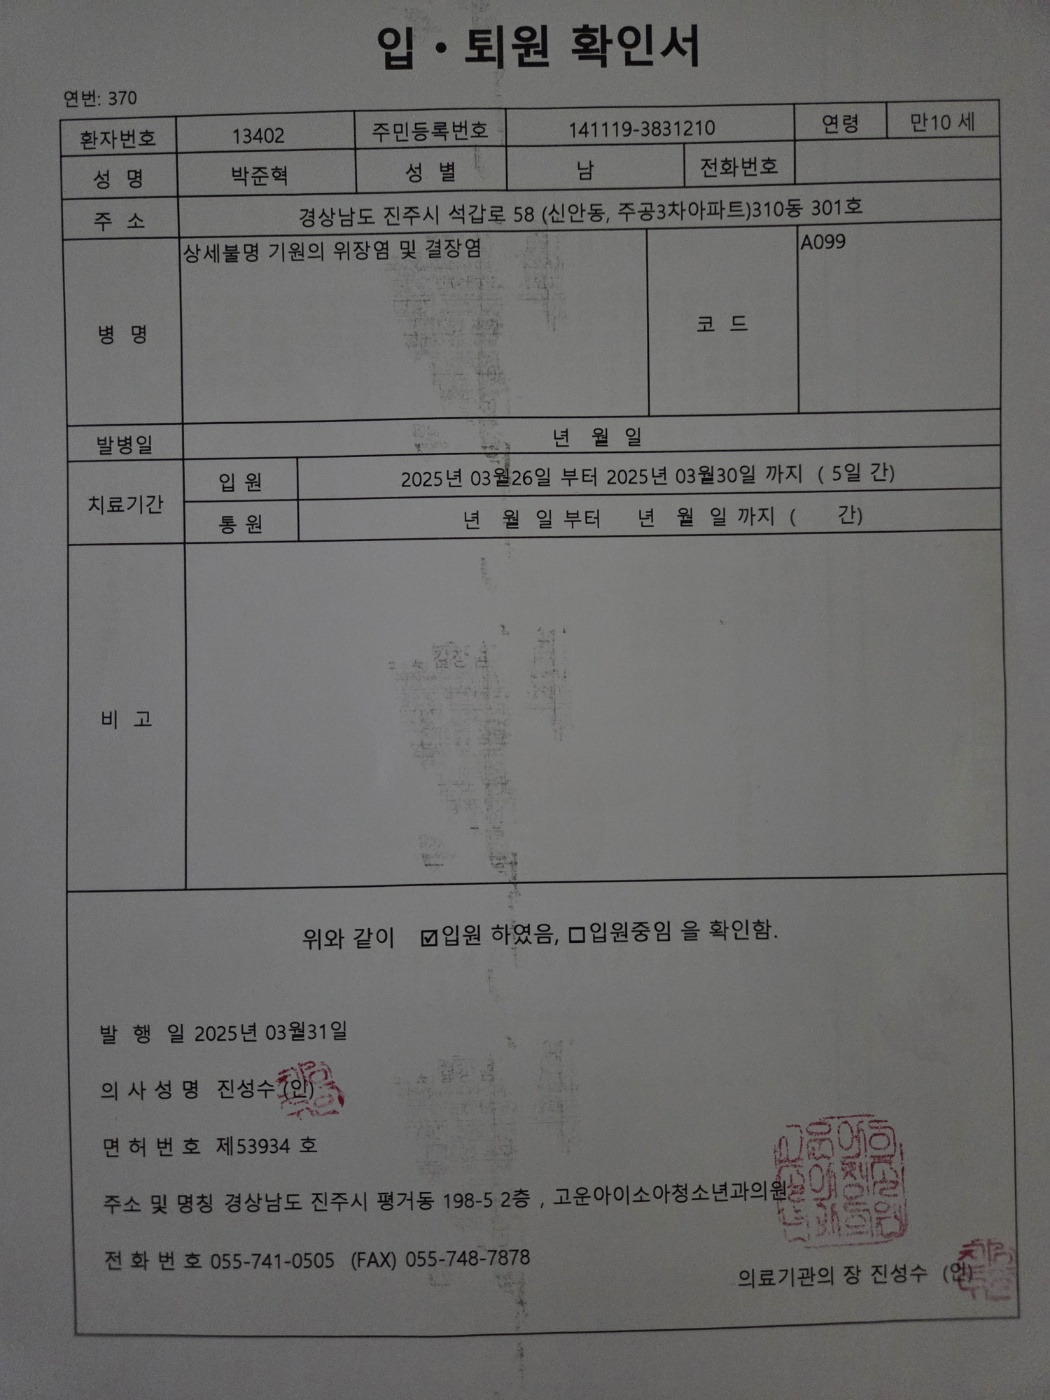 입 · 퇴원 확인서
연번: 370
환자번호 13402 주민등록번호 141119-3831210 연령 만10 세
성 명 박준혁 성 별 남 전화번호
주 소 경상남도 진주시 석갑로 58 (신안동, 주공3차아파트)310동 301호
병 명 상세불명 기원의 위장염 및 결장염 코 드 A099
발병일 년 월 일
치료기간 입 원 2025년 03월26일 부터 2025년 03월30일 까지 ( 5일 간)
통 원 년 월 일 부터 년 월 일 까지 ( 간)
비 고
위와 같이 ☑입원 하였음, □입원중임 을 확인함.
발 행 일 2025년 03월31일
의 사 성 명 진성수 (인)
면 허 번 호 제53934 호
주소 및 명칭 경상남도 진주시 평거동 198-5 2층 , 고운아이소아청소년과의원
전 화 번 호 055-741-0505 (FAX) 055-748-7878
의료기관의 장 진성수 (인)